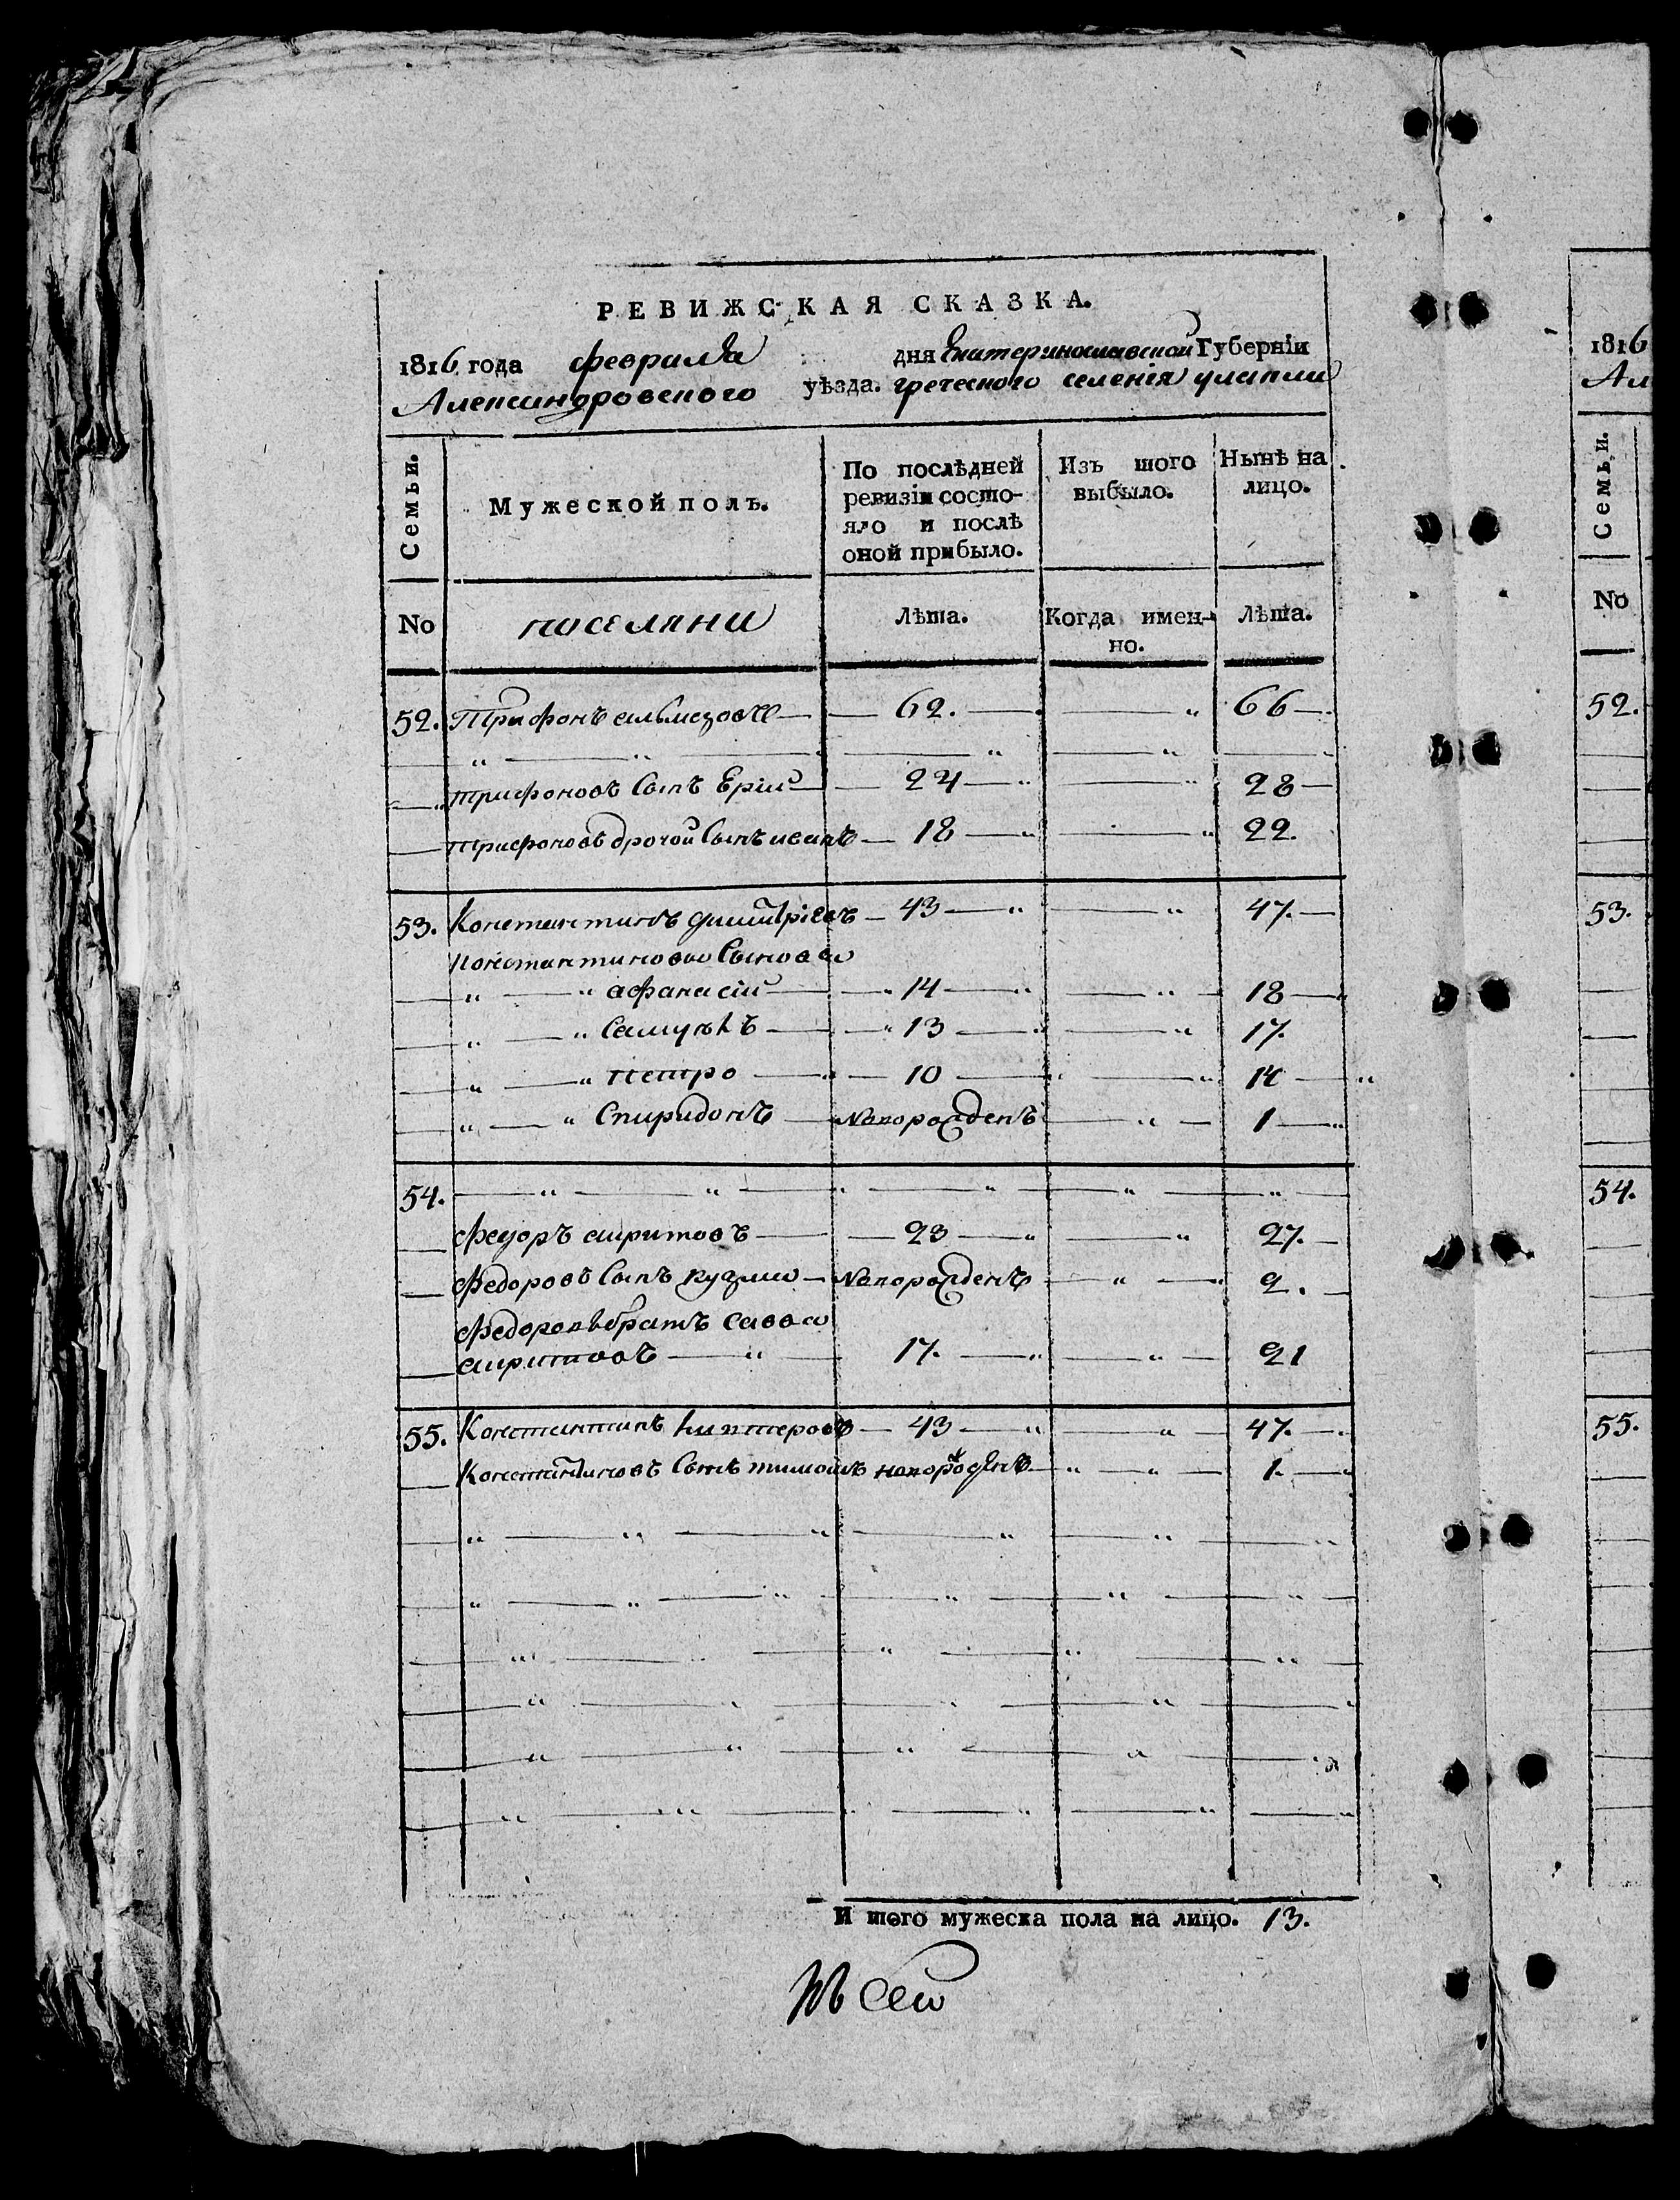 РЕВИЖСКАЯ СКАЗКА.
1816 года февраля дня Екатеринославской Губерніи
Александровского уѣзда. греческого селенія улаклы
Семьи.
Мужеской полъ.
По послѣдней ревизіи состояло и послѣ оной прибыло.
Изъ того выбыло.
Нынѣ на лицо.
No поселяни Лѣта. Когда именно. Лѣта.
52. Трифонъ 62. 66
Трифоновъ Сынъ Ерій 24 28
Трифоновъ дрогой Сынъ иванъ 18 22.
53. Константинъ димитріевъ 43 47.
Константинова Сынова
афанасій 14 18
Самуилъ 13 17.
петро 10 14
Спиридонъ Новорожденъ 1
54.
Федоръ 23 27.
Федоровъ Сынъ кузма Новорожденъ 2.
Федоровъ братъ Савва
17. 21
55. Константинъ 43 47.
Константиновъ Сынъ новорожденъ 1.
И того мужеска пола на лицо. 13.
1816
Ал
Семьи.
No
52.
53.
54.
55.